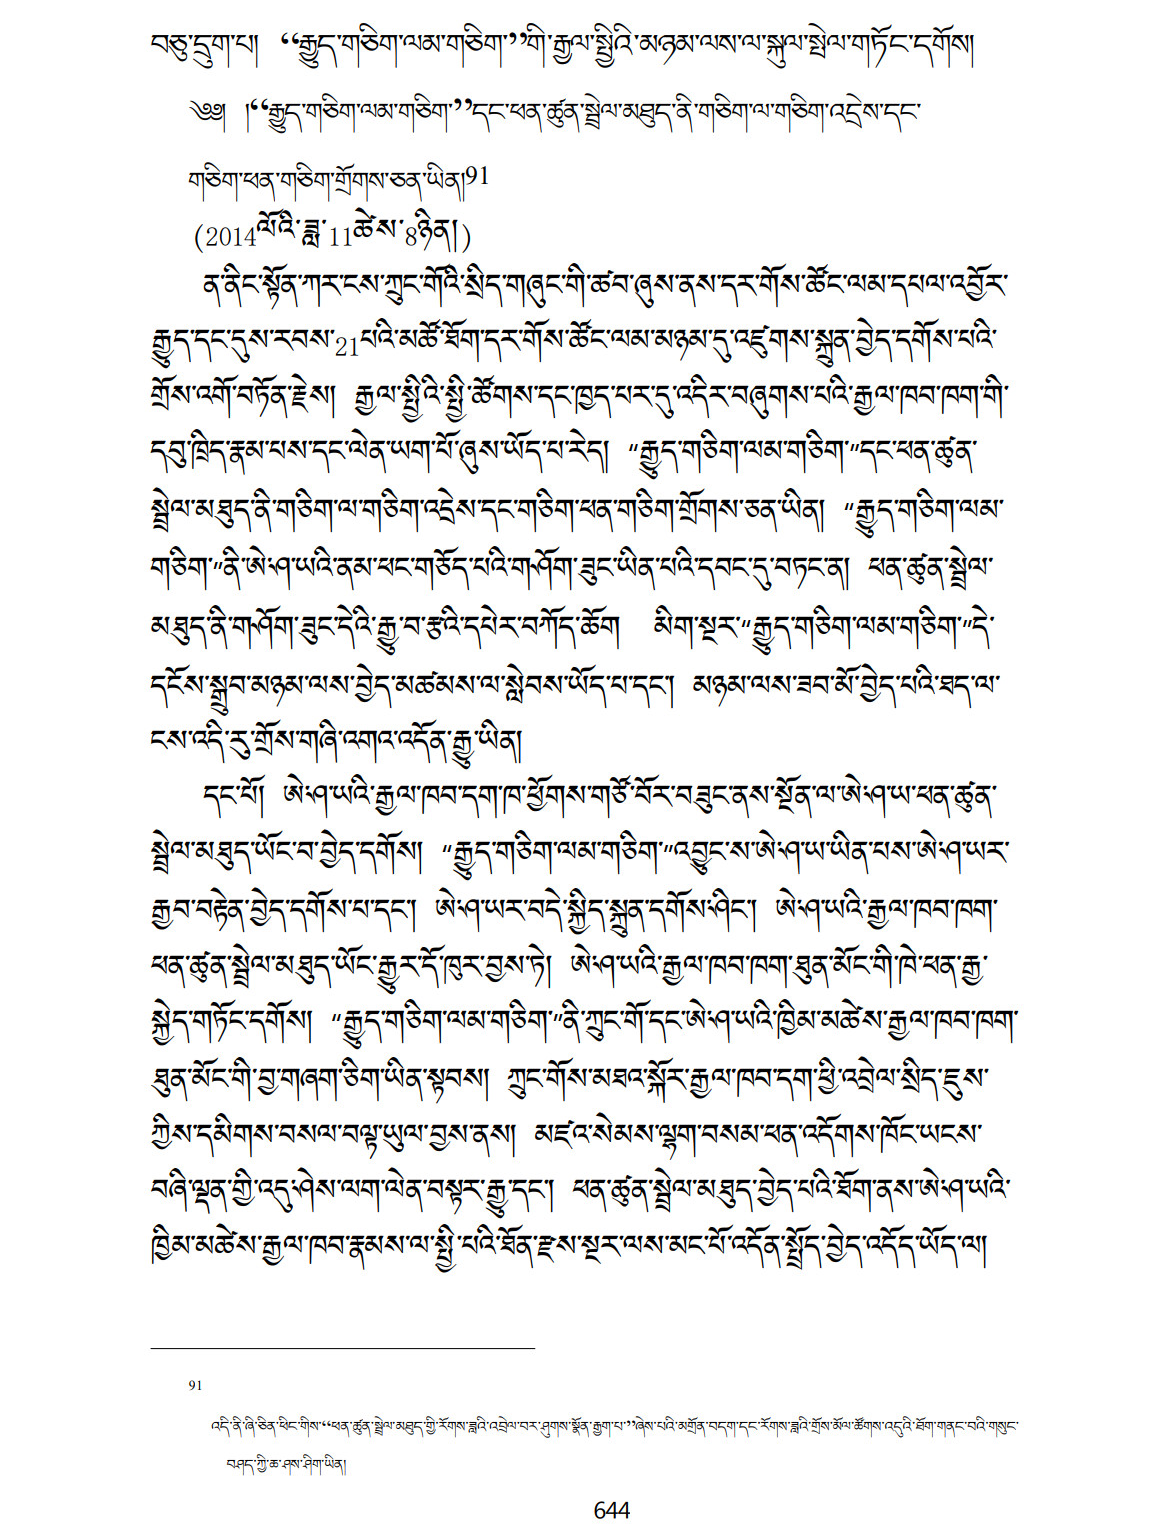 བཅུ་དྲུག་པ། “རྒྱུད་གཅིག་ལམ་གཅིག་”གི་རྒྱལ་སྤྱིའི་མཉམ་ལས་ལ་སྐུལ་སྤེལ་གཏོང་དགོས།
༄༅། །“རྒྱུད་གཅིག་ལམ་གཅིག་”དང་ཕན་ཚུན་སྦྲེལ་མཐུད་ནི་གཅིག་ལ་གཅིག་འདྲེས་དང་
གཅིག་ཕན་གཅིག་གྲོགས་ཅན་ཡིན།91
(2014ལོའི་ཟླ་11ཚེས་8ཉིན།)
ན་ནིང་སྟོན་ཀར་ངས་ཀྲུང་གོའི་སྲིད་གཞུང་གི་ཚབ་ཞུས་ནས་དར་གོས་ཚོང་ལམ་དཔལ་འབྱོར་
རྒྱུད་དང་དུས་རབས་21པའི་མཚོ་ཐོག་དར་གོས་ཚོང་ལམ་མཉམ་དུ་འཛུགས་སྐྲུན་བྱེད་དགོས་པའི་
གྲོས་འགོ་བཏོན་རྗེས། རྒྱལ་སྤྱིའི་སྤྱི་ཚོགས་དང་ཁྱད་པར་དུ་འདིར་བཞུགས་པའི་རྒྱལ་ཁབ་ཁག་གི་
དབུ་ཁྲིད་རྣམ་པས་དང་ལེན་ཡག་པོ་ཞུས་ཡོད་པ་རེད། “རྒྱུད་གཅིག་ལམ་གཅིག་”དང་ཕན་ཚུན་
སྦྲེལ་མཐུད་ནི་གཅིག་ལ་གཅིག་འདྲེས་དང་གཅིག་ཕན་གཅིག་གྲོགས་ཅན་ཡིན། “རྒྱུད་གཅིག་ལམ་
གཅིག་”ནི་ཨེ་ཤ་ཡའི་ནམ་ཕང་གཅོད་པའི་གཤོག་ཟུང་ཡིན་པའི་དབང་དུ་བཏང་ན། ཕན་ཚུན་སྦྲེལ་
མཐུད་ནི་གཤོག་ཟུང་དེའི་རྒྱུ་བ་རྩའི་དཔེར་བཀོད་ཆོག མིག་སྔར་“རྒྱུད་གཅིག་ལམ་གཅིག་”དེ་
དངོས་སྒྲུབ་མཉམ་ལས་བྱེད་མཚམས་ལ་སླེབས་ཡོད་པ་དང་། མཉམ་ལས་ཟབ་མོ་བྱེད་པའི་ཐད་ལ་
ངས་འདི་རུ་གྲོས་གཞི་འགའ་འདོན་རྒྱུ་ཡིན།
དང་པོ། ཨེ་ཤ་ཡའི་རྒྱལ་ཁབ་དག་ཁ་ཕྱོགས་གཙོ་བོར་བཟུང་ནས་སྔོན་ལ་ཨེ་ཤ་ཡ་ཕན་ཚུན་
སྦྲེལ་མཐུད་ཡོང་བ་བྱེད་དགོས། “རྒྱུད་གཅིག་ལམ་གཅིག་”འབྱུང་ས་ཨེ་ཤ་ཡ་ཡིན་པས་ཨེ་ཤ་ཡར་
རྒྱབ་བརྟེན་བྱེད་དགོས་པ་དང་། ཨེ་ཤ་ཡར་བདེ་སྐྱིད་སྐྲུན་དགོས་ཤིང་། ཨེ་ཤ་ཡའི་རྒྱལ་ཁབ་ཁག་
ཕན་ཚུན་སྦྲེལ་མཐུད་ཡོང་རྒྱུར་དོ་ཁུར་བྱས་ཏེ། ཨེ་ཤ་ཡའི་རྒྱལ་ཁབ་ཁག་ཐུན་མོང་གི་ཁེ་ཕན་རྒྱ་
སྐྱེད་གཏོང་དགོས། “རྒྱུད་གཅིག་ལམ་གཅིག་”ནི་ཀྲུང་གོ་དང་ཨེ་ཤ་ཡའི་ཁྱིམ་མཚེས་རྒྱལ་ཁབ་ཁག་
ཐུན་མོང་གི་བྱ་གཞག་ཅིག་ཡིན་སྟབས། ཀྲུང་གོས་མཐའ་སྐོར་རྒྱལ་ཁབ་དག་ཕྱི་འབྲེལ་སྲིད་ཇུས་
ཀྱིས་དམིགས་བསལ་བལྟ་ཡུལ་བྱས་ནས། མཛའ་སེམས་ལྷག་བསམ་ཕན་འདོགས་ཁོང་ཡངས་
བཞི་ལྡན་གྱི་འདུ་ཤེས་ལག་ལེན་བསྟར་རྒྱུ་དང་། ཕན་ཚུན་སྦྲེལ་མཐུད་བྱེད་པའི་ཐོག་ནས་ཨེ་ཤ་ཡའི་
ཁྱིམ་མཚེས་རྒྱལ་ཁབ་རྣམས་ལ་སྤྱི་པའི་ཐོན་རྫས་སྔར་ལས་མང་པོ་འདོན་སྤྲོད་བྱེད་འདོད་ཡོད་ལ།
91
འདི་ནི་ཞི་ཅིན་ཕིང་གིས་“ཕན་ཚུན་སྦྲེལ་མཐུད་ཀྱི་རོགས་ཟླའི་འབྲེལ་བར་ཤུགས་སྣོན་རྒྱག་པ་”ཞེས་པའི་མགྲོན་བདག་དང་རོགས་ཟླའི་གྲོས་མོལ་ཚོགས་འདུའི་ཐོག་གནང་བའི་གསུང་
བཤད་ཀྱི་ཆ་ཤས་ཤིག་ཡིན།
644